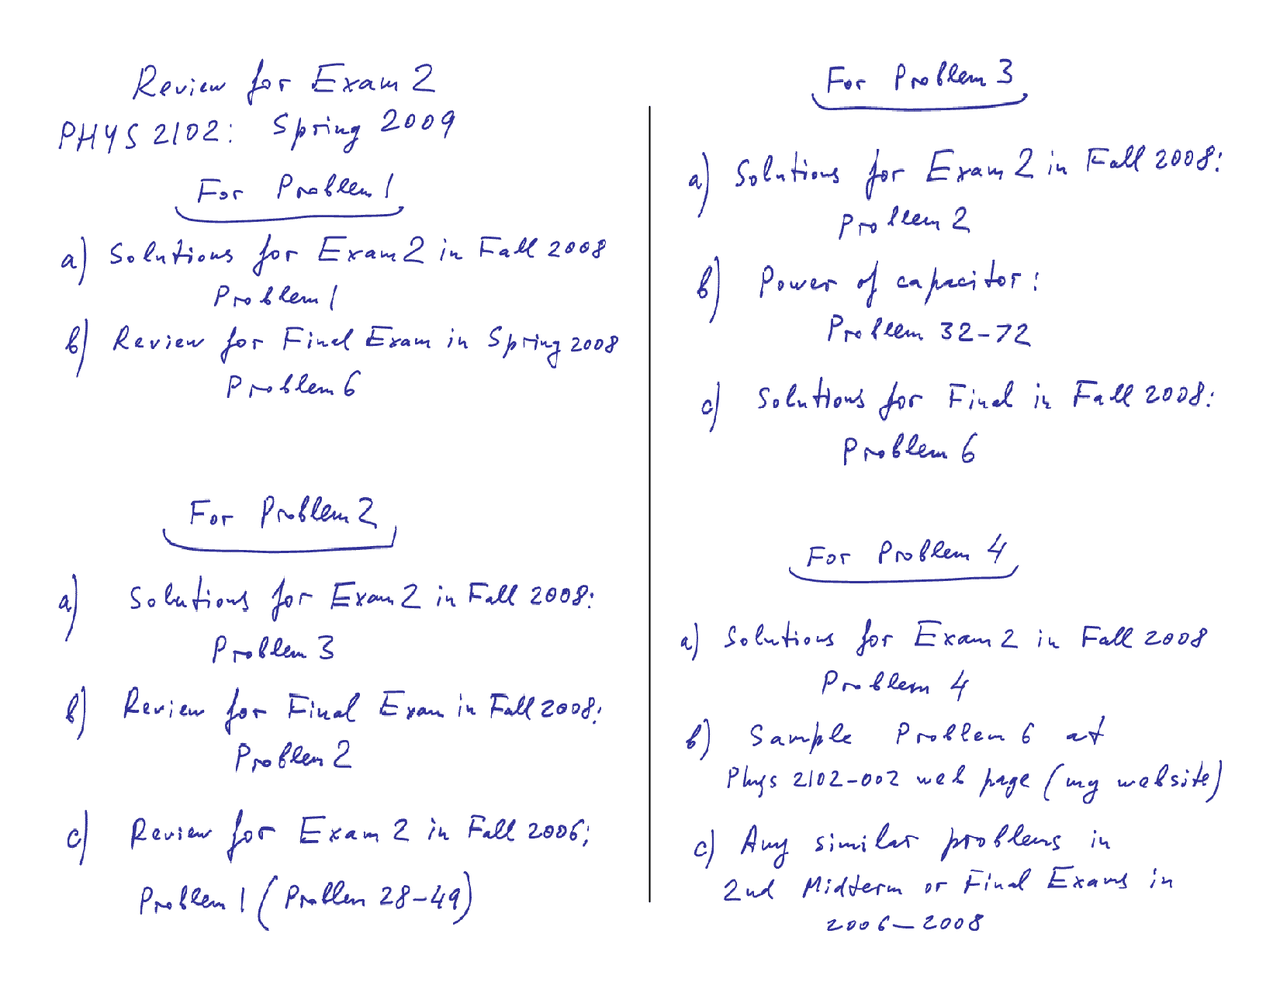 Review for Exam 2
PHYS 2102: Spring 2009
For Problem 1
a) Solutions for Exam 2 in Fall 2008
Problem 1
b) Review for Final Exam in Spring 2008
Problem 6
For Problem 2
a) Solutions for Exam 2 in Fall 2008:
Problem 3
b) Review for Final Exam in Fall 2008:
Problem 2
c) Review for Exam 2 in Fall 2006;
Problem 1 (Problem 28-49)
For Problem 3
a) Solutions for Exam 2 in Fall 2008:
Problem 2
b) Power of capacitor:
Problem 32-72
c) Solutions for Final in Fall 2008:
Problem 6
For Problem 4
a) Solutions for Exam 2 in Fall 2008
Problem 4
b) Sample Problem 6 at
Phys 2102-002 web page (my website)
c) Any similar problems in
2nd Midterm or Final Exams in
2006-2008